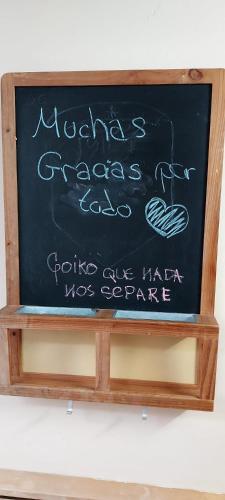 Muchas
Gracias por
todo
Goiko QUE NADA
NOS SEPARE